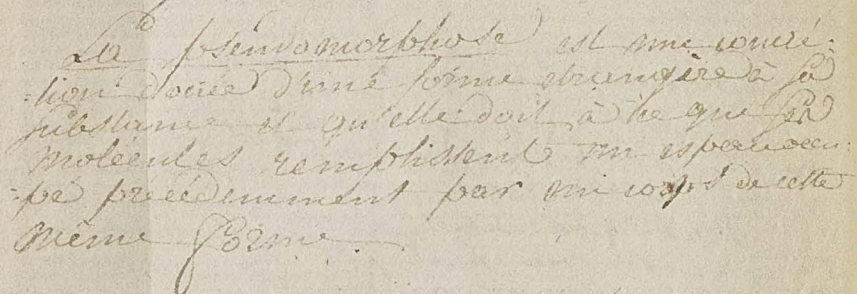 La pseudomorphose est une concré-
-tion douée d'une forme etrangère à sa
substance et qu'elle doit à ce que ses
molécules remplissent un espace occu-
-pé précédemment par un corps de cette
même forme